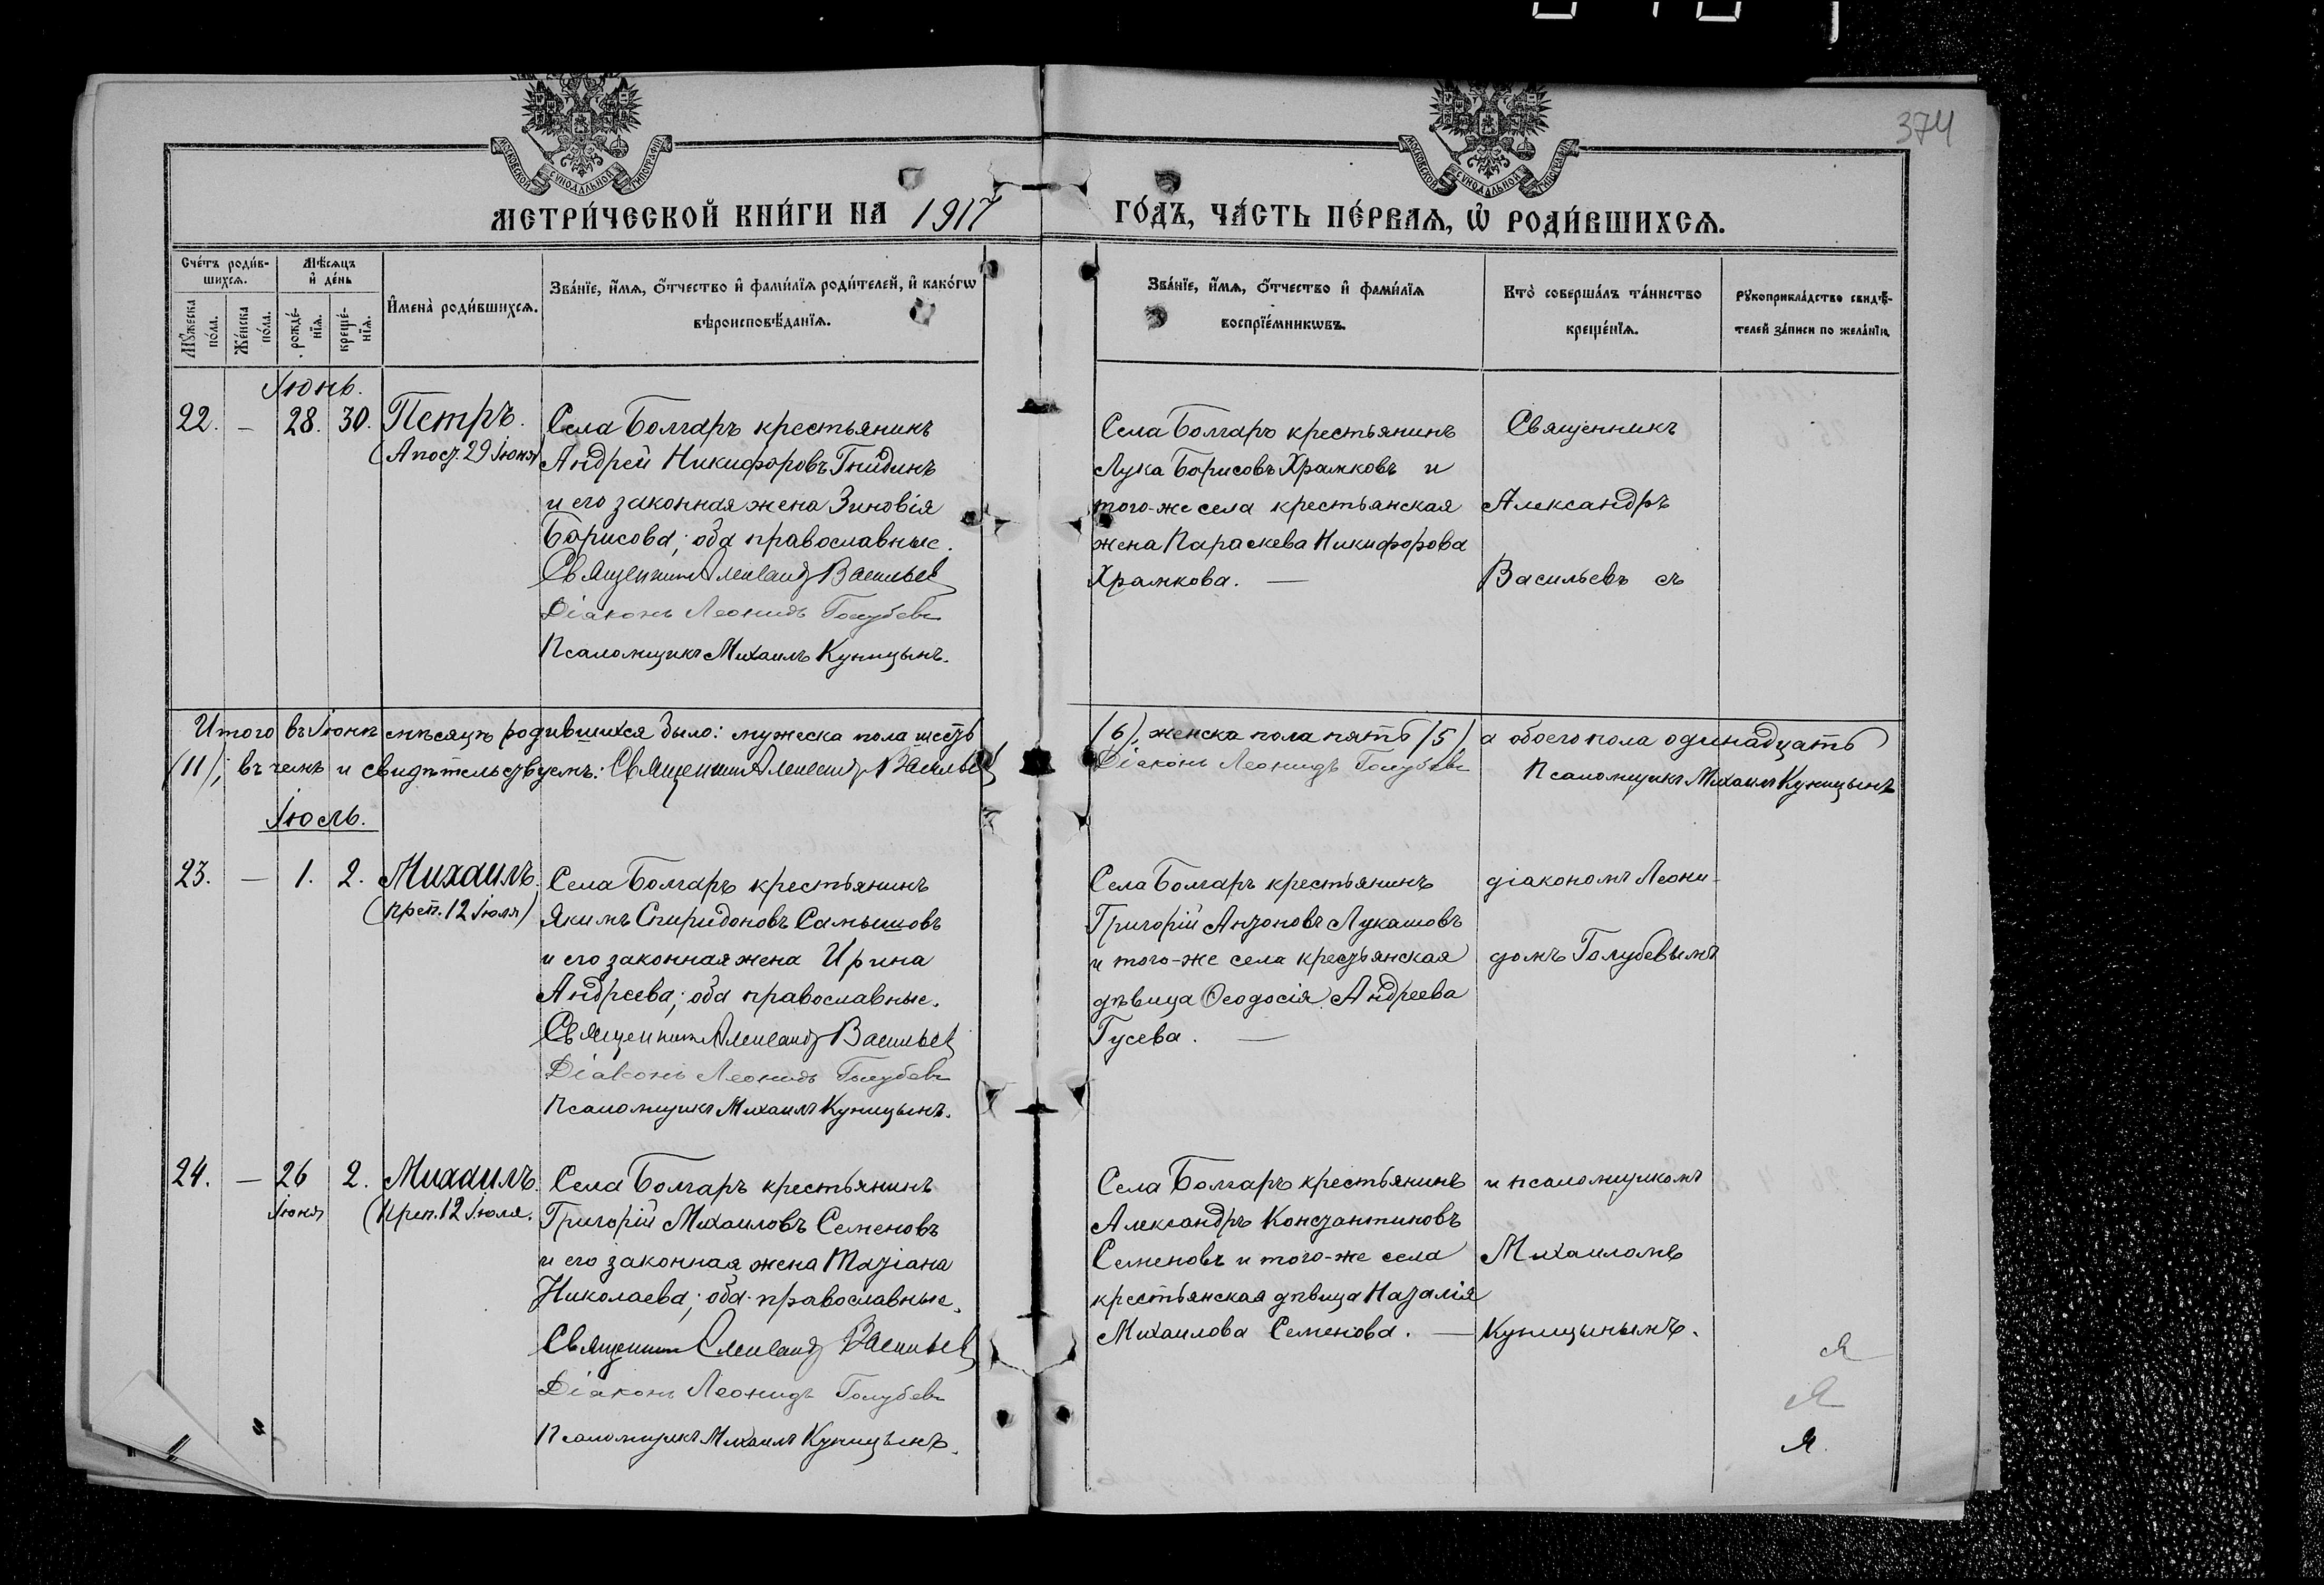 374
МОСКОВСКОЙ СѴНОДАЛЬНОЙ ТИПОГРАФІИ
МОСКОВСКОЙ СѴНОДАЛЬНОЙ ТИПОГРАФІИ
МЕТРИ́ЧЕСКОЙ КНИ́ГИ НА 1917
ГО́ДЪ, ЧА́СТЬ ПЕ́РВАѦ, Ѡ РОДИ́ВШИХСѦ.
Сче́тъ роди́в-
шихсѧ.
Мѣ́сѧцъ
и҆ де́нь
Мꙋ́жеска
по́ла.
Же́нска
по́ла.
рожде́-
нїѧ.
креще́-
нїѧ.
И҆мена̀ роди́вшихсѧ.
Зва́нїе, и҆́мѧ, ѻ҆́тчество и҆ фами́лїѧ роди́телей, и҆ како́гѡ
вѣроисповѣ́данїѧ.
Зва́нїе, и҆́мѧ, ѻ҆́тчество и҆ фами́лїѧ
воспрїе́мникѡвъ.
Кто̀ соверша́лъ та́инство
креще́нїѧ.
Рꙋкоприкла́дство свидѣ́-
телей за́писи по жела́нїю.
Іюнь.
22. — 28. 30. Петръ.
(Апост. 29 Іюня)
Села Болгаръ крестьянинъ
Андрей Никифоровъ Гнидинъ
и его законная жена Зиновія
Борисова; оба православные.
Священникъ Александр Васильев
Діаконъ Леонидъ Голубевъ
Псаломщикъ Михаилъ Куницынъ.
Села Болгаръ крестьянинъ
Лука Борисовъ Храмковъ и
того-же села крестьянская
жена Параскева Никифорова
Храмкова. —
Священникъ
Александръ
Васильевъ съ
Итого въ Іюнѣ мѣсяцѣ родившихся было: мужеска пола шесть
(6), женска пола пять (5), а обоего пола одинадцать
(11); въ чемъ и свидѣтельствуемъ: Священникъ Александр Васильев
Діаконъ Леонидъ Голубевъ
Псаломщикъ Михаилъ Куницынъ
Іюль.
23. — 1. 2. Михаилъ.
(преп. 12 Іюля)
Села Болгаръ крестьянинъ
Якимъ Спиридоновъ Самышовъ
и его законная жена Ирина
Андреева; оба православные.
Священникъ Александр Васильев
Діаконъ Леонидъ Голубевъ
Псаломщикъ Михаилъ Куницынъ.
Села Болгаръ крестьянинъ
Григорій Антоновъ Лукашовъ
и того-же села крестьянская
дѣвица Ѳеодосія Андреева
Гусева. —
діакономъ Леони-
домъ Голубевымъ
24. — 26 2. Михаилъ.
Іюня
(Преп. 12 Іюля.
Села Болгаръ крестьянинъ
Григорій Михаиловъ Семеновъ
и его законная жена Татіана
Николаева; оба православные.
Священникъ Александр Васильев
Діаконъ Леонидъ Голубевъ
Псаломщикъ Михаилъ Куницынъ.
Села Болгаръ крестьянинъ
Александръ Константиновъ
Семеновъ и того-же села
крестьянская дѣвица Наталія
Михаилова Семенова. —
и псаломщикомъ
Михаиломъ
Куницынымъ.
Я
Я
Я.